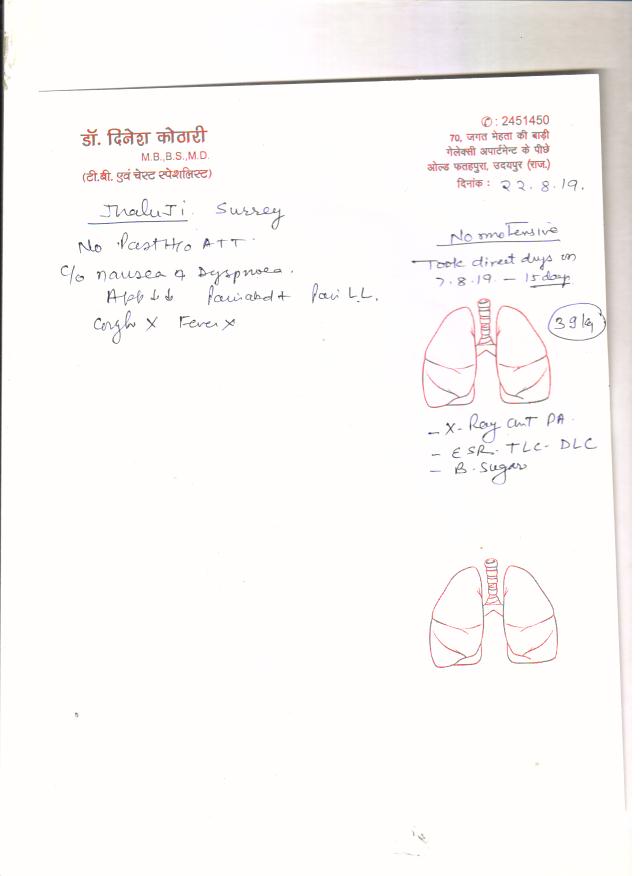 डॉ. दिनेश कोठारी
M.B.,B.S.,M.D.
(टी.बी. एवं चेस्ट स्पेशलिस्ट)
✆ : 2451450
70, जगत मेहता की बाड़ी
गेलेक्सी अपार्टमेन्ट के पीछे
ओल्ड फतहपुरा, उदयपुर (राज.)
दिनांक : 22.8.19.
JhaluJi. Surrey
No Past H/o ATT.
C/o nausea & Dyspnoea.
App ↓↓ Pain abd + Pain LL.
Cough X Fever X
Normotensive
Took direct
7.8.19. – 15 days
39 kg
– X-Ray PA.
– ESR. TLC- DLC
– B. Sugar